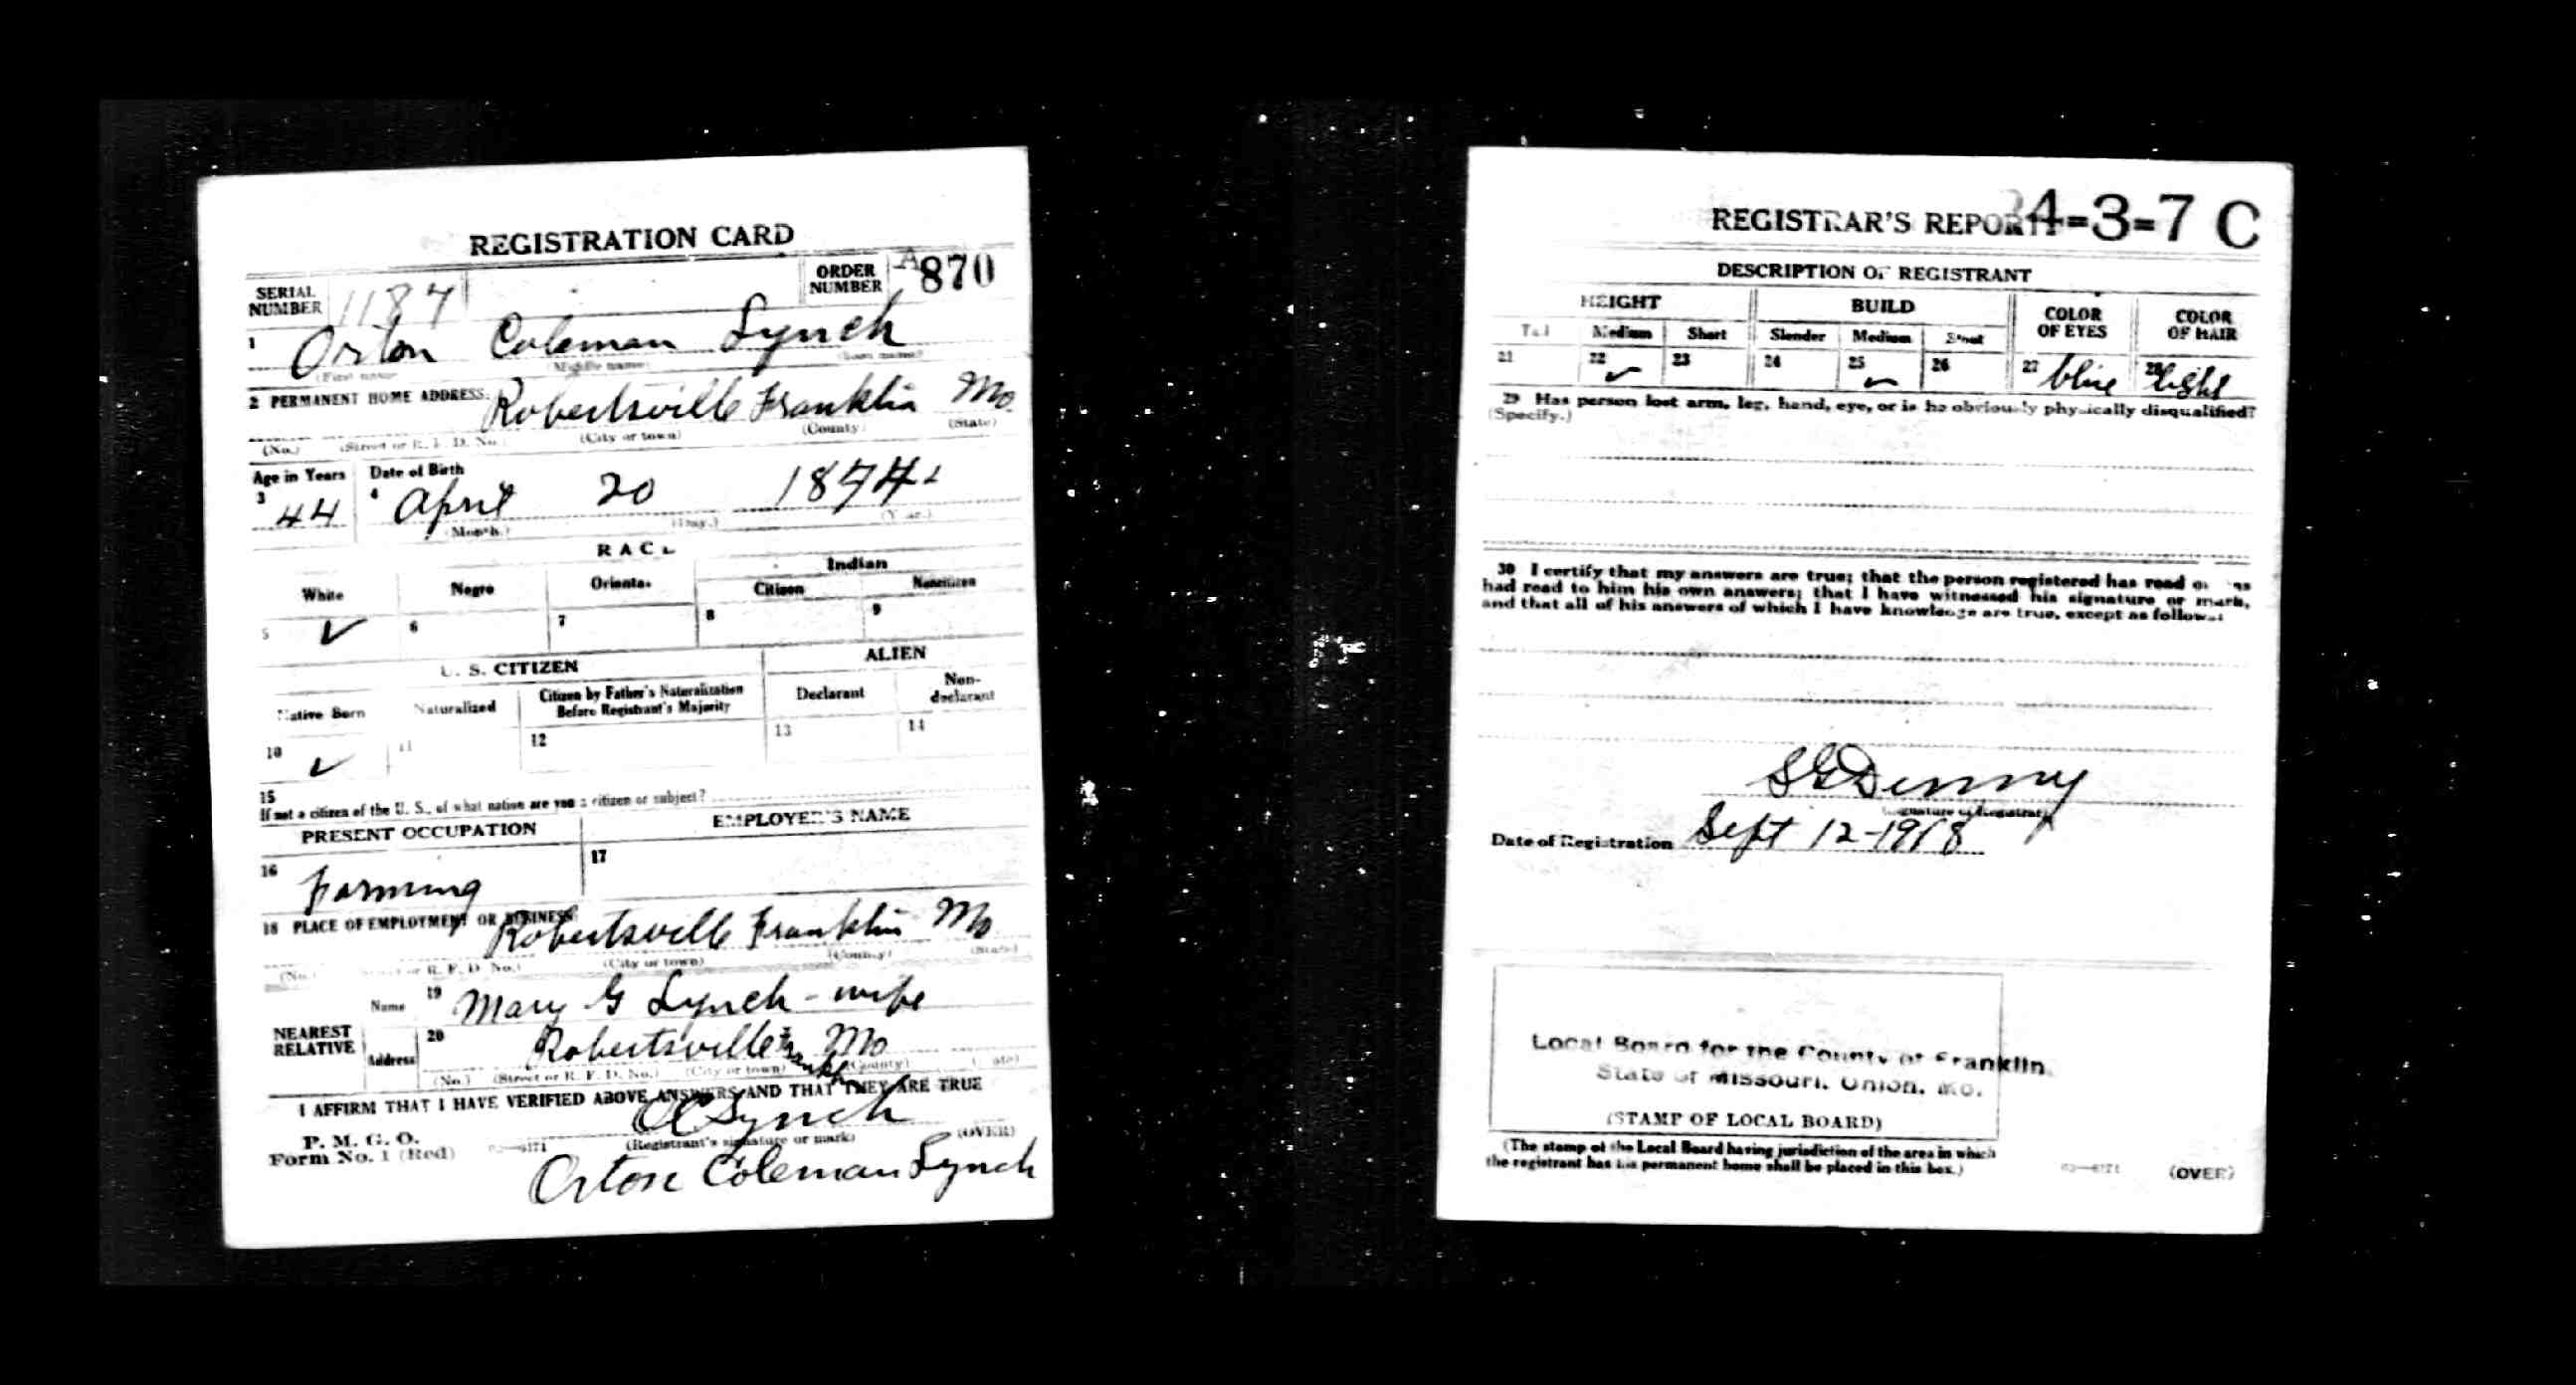 REGISTRATION CARD
SERIAL NUMBER 1187 ORDER NUMBER A 870
1 Orton Coleman Lynch
(First name) (Middle name) (Last name)
2 PERMANENT HOME ADDRESS: Robertsville Franklin Mo
(No.) (Street or R. F. D. No.) (City or town) (County) (State)
Age in Years Date of Birth
3 44 4 April 20 1874
(Month.) (Day.) (Year.)
RACE
White Negro Oriental Indian
Citizen Noncitizen
5 ✓ 6 7 8 9
U. S. CITIZEN ALIEN
Native Born Naturalized Citizen by Father's Naturalization Before Registrant's Majority Declarant Non-declarant
10 ✓ 11 12 13 14
15
If not a citizen of the U. S., of what nation are you a citizen or subject?
PRESENT OCCUPATION EMPLOYER'S NAME
16 Farming 17
18 PLACE OF EMPLOYMENT OR BUSINESS: Robertsville Franklin Mo
(No.) (Street or R. F. D. No.) (City or town) (County) (State)
NEAREST RELATIVE Name 19 Mary G Lynch - wife
Address 20 Robertsville Mo
(No.) (Street or R. F. D. No.) (City or town) (County) (State)
I AFFIRM THAT I HAVE VERIFIED ABOVE ANSWERS AND THAT THEY ARE TRUE
P. M. G. O.
Form No. 1 (Red) O C Lynch
(Registrant's signature or mark) (OVER)
Orton Coleman Lynch
REGISTRAR'S REPORT 24-3-7 C
DESCRIPTION OF REGISTRANT
HEIGHT BUILD COLOR OF EYES COLOR OF HAIR
Tall Medium Short Slender Medium Stout
21 22 ✓ 23 24 25 ✓ 26 27 blue 28 light
29 Has person lost arm, leg, hand, eye, or is he obviously physically disqualified?
(Specify.)
30 I certify that my answers are true; that the person registered has read or has
had read to him his own answers; that I have witnessed his signature or mark,
and that all of his answers of which I have knowledge are true, except as follows:
S G Denny
(Signature of Registrar)
Date of Registration Sept 12-1918
Local Board for the County of Franklin,
State of Missouri. Union, Mo.
(STAMP OF LOCAL BOARD)
(The stamp of the Local Board having jurisdiction of the area in which
the registrant has his permanent home shall be placed in this box.)
(OVER)